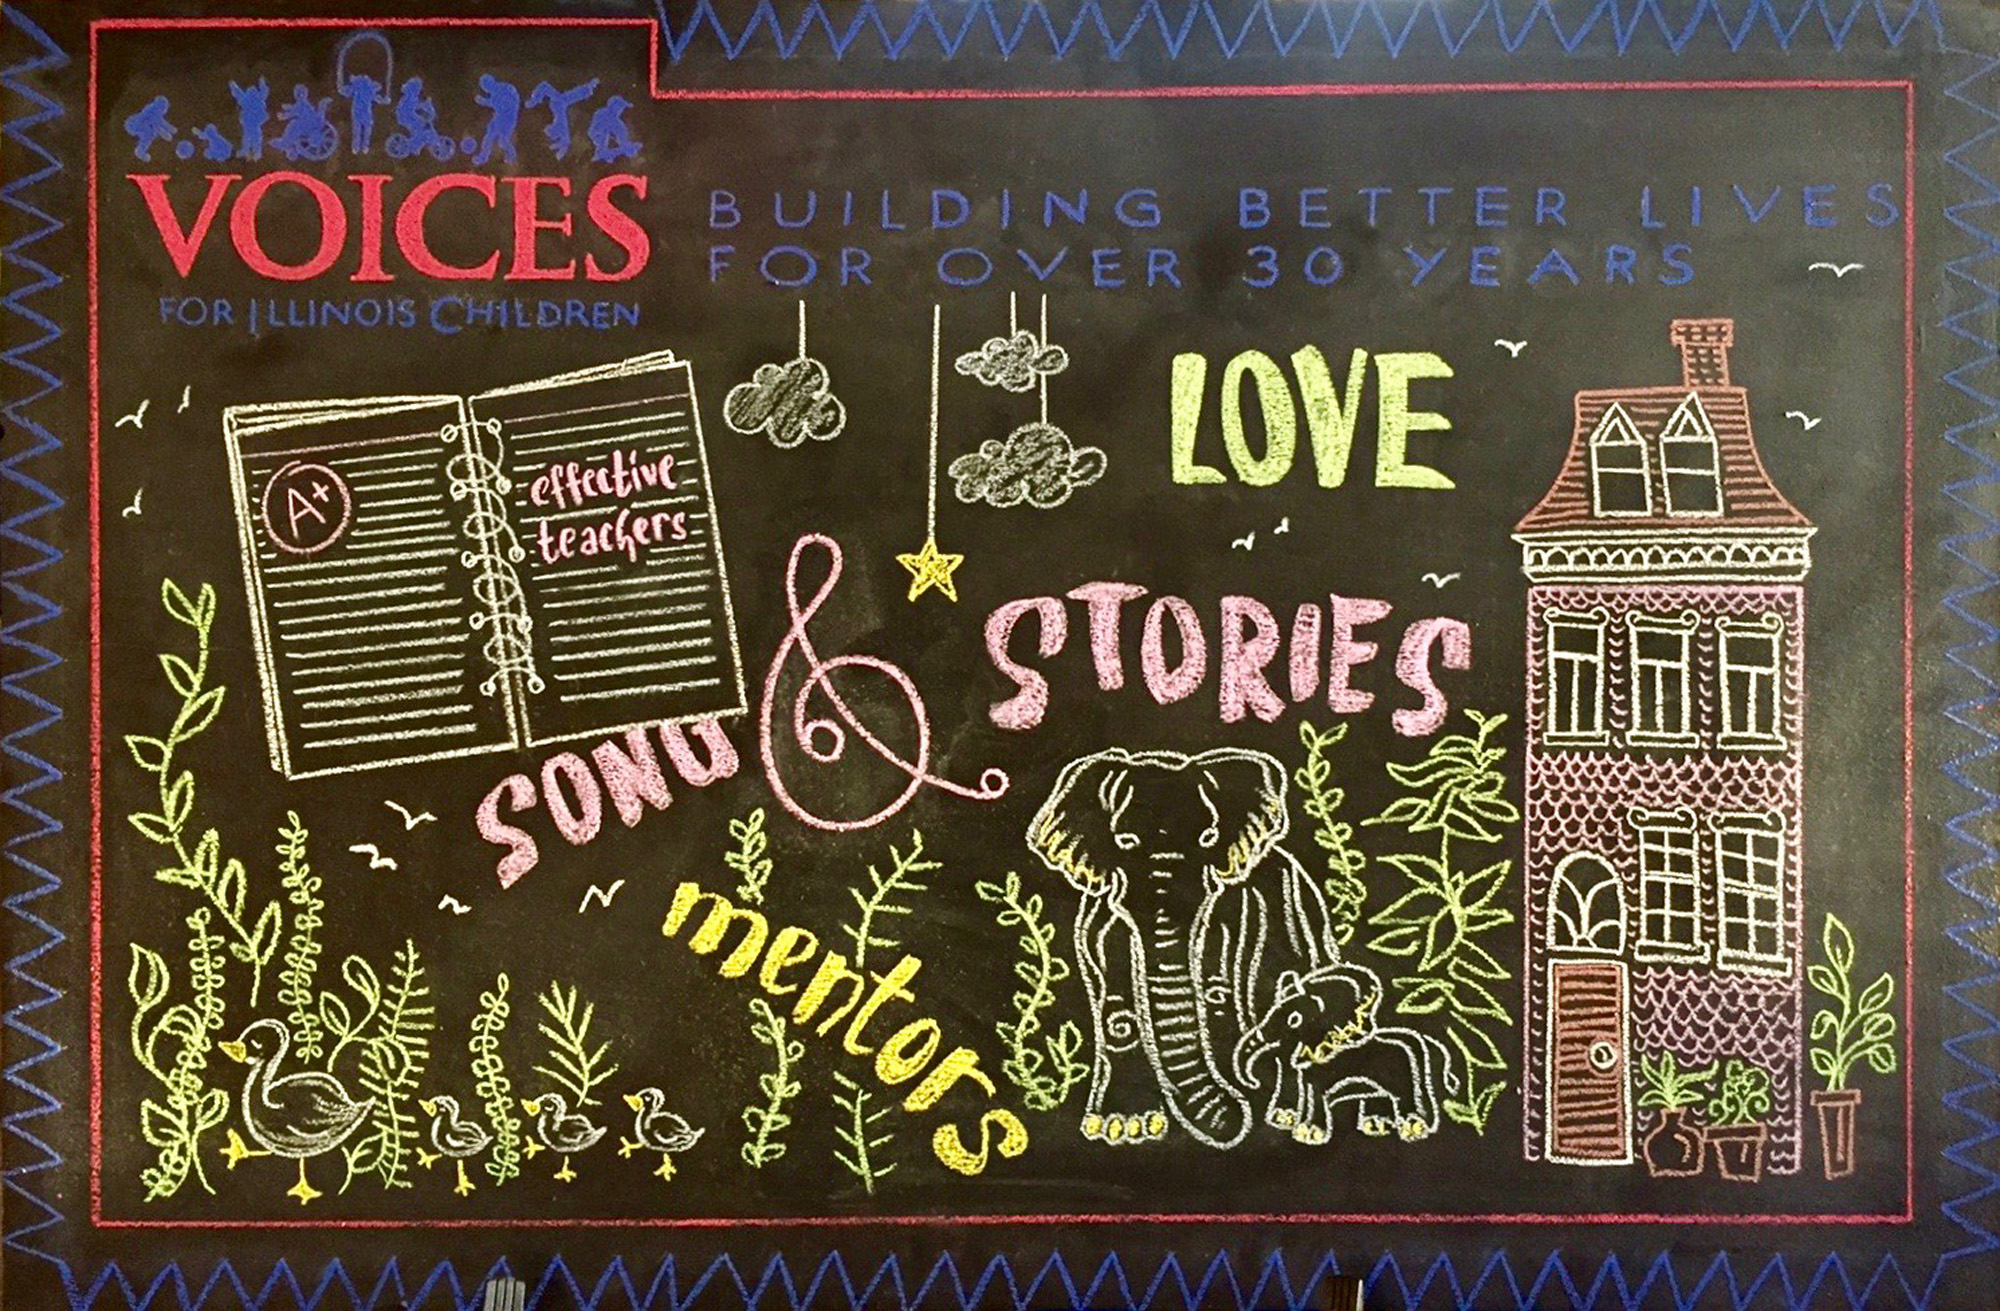 VOICES
FOR ILLINOIS CHILDREN
BUILDING BETTER LIVES
FOR OVER 30 YEARS
A+
effective
teachers
LOVE
SONG
&
STORIES
mentors